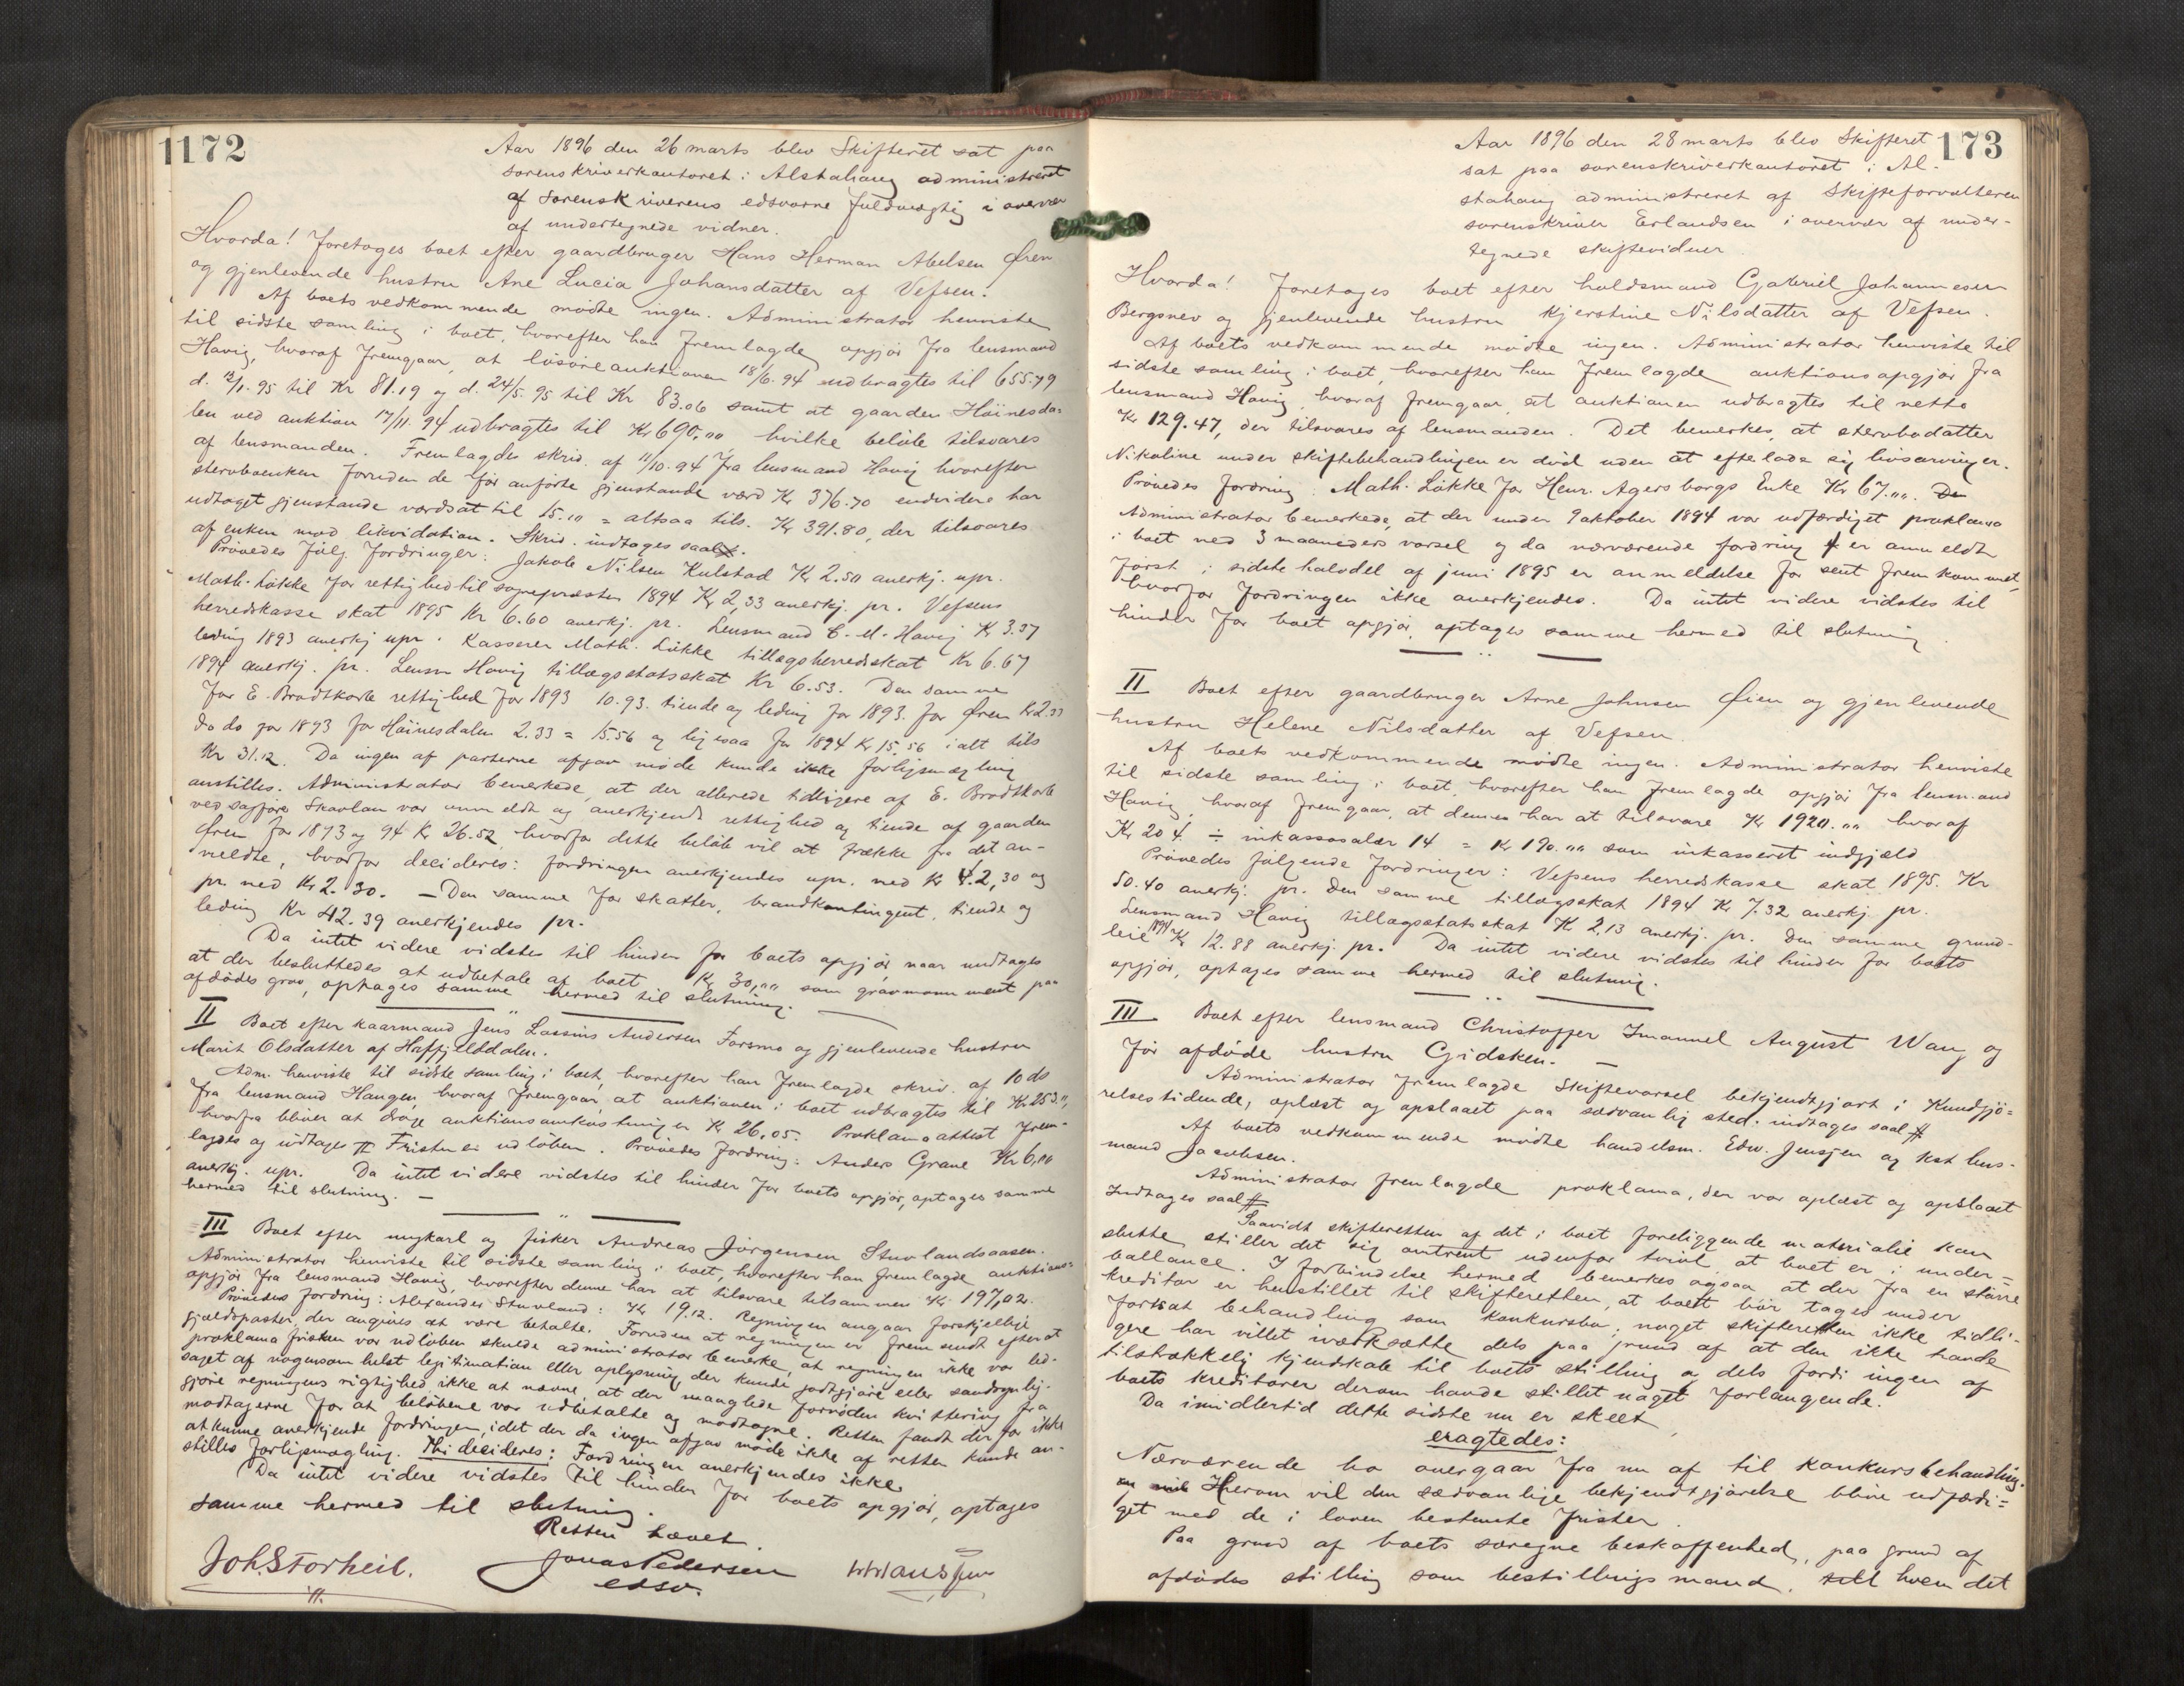 1172
Aar 1896 den 26 marts blev Skifteret sat paa
sorenskriverkontoret i Alstahaug administreret
af sorenskriverens edsvorne fuldmægtig i overvær
af undertegnede vidner.
Hvorda! Foretoges boet efter gaardbruger Hans Herman Abelsen Øren
og gjenlevende hustru Ane Lucia Johansdatter af Vefsen.
Af boets vedkommende mødte ingen. Administrator henviste
til sidste samling i boet, hvorefter han fremlagde opgjør fra lensmand
Havig, hvoraf fremgaar, at løsøreauktionen 18/6. 94 udbragtes til 655.79
d. 12/1. 95 til Kr 81.19 og d. 24/5. 95 til Kr 83.06 samt at gaarden Høinesda=
len ved auktion 17/11. 94 udbragtes til Kr 690,,,, hvilke beløb tilsvares
af lensmanden. Fremlagdes skriv. af 11/10. 94 fra lensmand Havig hvorefter
stervboenken foruden de før anførte gjenstande værd Kr 376.70 endvidere har
udtaget gjenstande værdsat til 15.10 = altsaa tils. Kr 391.80, der tilsvares
af enken mod likvidation. Skriv. indtages saal.
Prøvedes følg. fordringer: Jakob Nilsen Kulstad Kr 2.50 anerkj. upr.
Math. Løkke for rettighed til sognepræsten 1894 Kr 2,33 anerkj. pr. Vefsens
herredskasse skat 1895 Kr 6.60 anerkj. pr. Lensmand C. M. Havig Kr 3.37
leding 1893 anerkj upr. Kasserer Math. Løkke tillægsherredskat Kr 6.67
1894 anerkj. pr. Lensm Havig tillægsstatsskat Kr 6.53. Den samme
for E. Brodtkorb rettighed for 1893 10.93. tiende og leding for 1893. for Øren Kr 2.33
do do for 1893 for Høinesdalen 2.33 = 15.56 og ligesaa for 1894 Kr 15.56 ialt tils
Kr 31.12. Da ingen af parterne afgav møde kunde ikke forligsmægling
anstilles. Administrator bemerkede, at der allerede tidligere af E. Brodtkorb
ved sagfører Skavlan var anmeldt og anerkjendt rettighed og tiende af gaarden
Øren for 1893 og 94 Kr 26.52, hvorfor dette beløb vil at trække fra det an-
meldte, hvorfor decideres: fordringen anerkjendes upr. ned Kr 4.2,30 og
pr. ned Kr 2.30. — Den samme for skatter, brandkontingent, tiende og
leding Kr 42.39 anerkjendes pr.
Da intet videre vidstes til hinder for boets opgjør naar undtages
at der besluttedes at udbetale af boet Kr 30,,,, som gravmonument paa
afdødes grav, optages samme hermed til slutning.
II Boet efter kaarmand Jens Lassius Andersen Forsmo og gjenlevende hustru
Marit Olsdatter af Hatfjelddalen.
Adm. henviste til sidste samling i boet, hvorefter han fremlagde skriv. af 10 ds
fra lensmand Haugen, hvoraf fremgaar, at auktionen i boet udbragtes til Kr 253.,,
hvorfra bliver at drage auktionsomkostninger Kr 26,05. Proklamaattest frem-
lagdes og indtages # Fristen er udløben. Prøvedes fordring: Anders Grane Kr 6,00
anerkj. upr. Da intet videre vidstes til hinder for boets opgjør, optages samme
hermed til slutning. —
III Boet efter ungkarl og fisker Andreas Jørgensen Stuvlandsaasen.
Administrator henviste til sidste samling i boet, hvorefter han fremlagde auktions=
opgjør fra lensmand Havig, hvorefter denne har at tilsvare tilsammen Kr 197,02.
Prøvedes fordring: Alexander Stuvland: Kr 19,12. Regningen angaar forskjellige
gjældsposter, der angives at være betalte. Foruden at regningen er fremsendt efterat
proklama fristen var udløben skulde administrator bemerke, at regningen ikke var led-
saget af nogensomhelst legitimation eller oplysning der kunde godtgjøre eller sandsynlig-
gjøre regningens rigtighed ikke at nævne, at der manglede fornøden kvittering fra
modtagerne for at beløbene var udbetalte og modtagne. Retten fandt derfor ikke
at kunne anerkjende fordringen, idet der da ingen afgav møde ikke af retten kunde an-
stilles forligsmægling. Thi decideres: Fordringen anerkjendes ikke.
Da intet videre vidstes til hinder for boets opgjør, optages
samme hermed til slutning.
Retten hævet.
Joh. Storheil. Jonas Pedersen HHansen
edsv.
173
Aar 1896 den 28 marts blev Skifteret
sat paa sorenskriverkontoret i Al-
stahaug administreret af Skifteforvalteren
sorenskriver Erlandsen i overvær af under-
tegnede skiftevidner.
Hvorda! Foretoges boet efter holdsmand Gabriel Johannesen
Bergsnev og gjenlevende hustru Kjerstine Nilsdatter af Vefsen.
Af boets vedkommende mødte ingen. Administrator henviste til
sidste samling i boet, hvorefter han fremlagde auktionsopgjør fra
lensmand Havig, hvoraf fremgaar, at auktionen udbragtes til netto
Kr 129.47, der tilsvares af lensmanden. Det bemerkes, at stervbodatter
Nikoline under skiftebehandlingen er død uden at efterlade sig livsarvinger.
Prøvedes fordring: Math. Løkke for Henr. Agersborgs Enke Kr 67.,,,. De
Administrator bemerkede, at der under 9 oktober 1894 var udfærdiget proklama
i boet med 3 maaneders varsel og da nærværende fordring er anmeldt
først i sidste halvdel af juni 1895 er anmeldelse for sent fremkommet,
hvorfor fordringen ikke anerkjendes. Da intet videre vidstes til
hinder for boet opgjør, optages samme hermed til slutning.
II Boet efter gaardbruger Arne Johnsen Øien og gjenlevende
hustru Helene Nilsdatter af Vefsen.
Af boets vedkommende mødte ingen. Administrator henviste
til sidste samling i boet, hvorefter han fremlagde opgjør fra lensmand
Havig, hvoraf fremgaar, at denne har at tilsvare Kr 1920.,,,, hvoraf
Kr 204 ÷ inkassosalær 14 = Kr 190.,,,, som inkasseret indgjæld
Prøvedes følgende fordringer: Vefsens herredskasse skat 1895. Kr
50.40 anerkj. pr. Den samme tillægsskat 1894 Kr 7.32 anerkj. pr.
Lensmand Havig tillægsstatsskat K 2,13 anerkj. pr. Den samme grund-
leie 1894 Kr 12.88 anerkj. pr. Da intet videre vidstes til hinder for boets
opgjør, optages samme hermed til slutning.
III Boet efter lensmand Christoffer Imanuel August Wang og
før afdøde hustru Gidsken. —
Administrator fremlagde Skiftevarsel bekjendtgjort i Kundgjø=
relsestidende, oplæst og opslaaet paa sædvanlig sted. indtages saal #
Af boets vedkommende mødte handelsm. Edw. Jensjen og kst lens-
mand Jacobsen.
Administrator fremlagde proklama, der var oplæst og opslaaet
Indtages saal #
Saavidt skifteretten af det i boet foreliggende materialie kan
slutte stiller det sig omtrent udenfor tvivl, at boet er i under=
ballance. I forbindelse hermed bemerkes ogsaa at der fra en større
kreditor er henstillet til skifteretten, at boet bør tages under
fortsat behandling som konkursbo, noget skifteretten ikke tidli-
gere har villet iværksætte dels paa grund af at den ikke havde
tilstrækkelig kjendskab til boets stilling og dels fordi ingen af
boets kreditorer derom havde stillet noget forlangende.
Da imidlertid dette sidste nu er skeet
eragtedes:
Nærværende bo overgaar fra nu af til konkursbehandling.
Herom vil den sædvanlige bekjendtgjørelse blive udfærdi=
get med de i loven bestemte frister.
Paa grund af boets særegne beskaffenhed, paa grund af
afdødes stilling som bestillingsmand, till hvem det